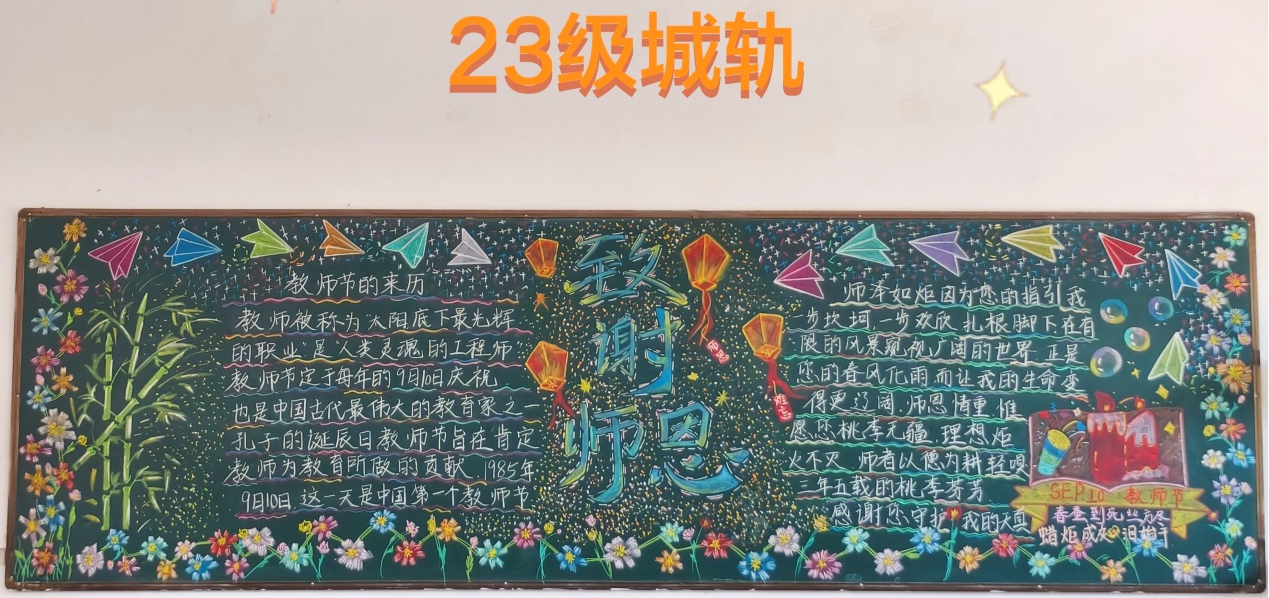 23级城轨
致谢师恩
教师节的来历
教师被称为"太阳底下最光辉
的职业"是"人类灵魂的工程师"
教师节定于每年的9月10日庆祝
也是中国古代最伟大的教育家之一
孔子的诞辰日教师节旨在肯定
教师为教育所做的贡献 1985年
9月10日 这一天是中国第一个教师节
师恩
难忘
师泽如炬因为您的指引我
一步坎坷一步欢欣 扎根脚下在有
限的风景窥视广阔的世界 正是
您的春风化雨而让我的生命变
得更辽阔 师恩情重 惟
愿您桃李无疆 理想炬
火不灭 师者以德为耕轻嗅
三年五载的桃李芬芳
感谢您守护我的天真
SEP.10 教师节
春蚕到死丝方尽
蜡炬成灰泪始干